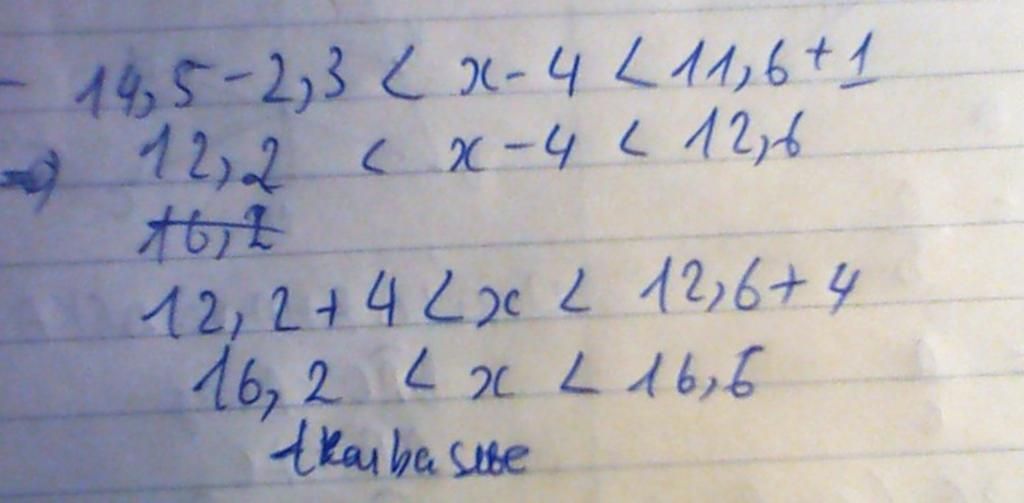 - 14,5 - 2,3 < x - 4 < 11,6 + 1
=> 12,2 < x - 4 < 12,6
12,2 + 4 < x < 12,6 + 4
16,2 < x < 16,6